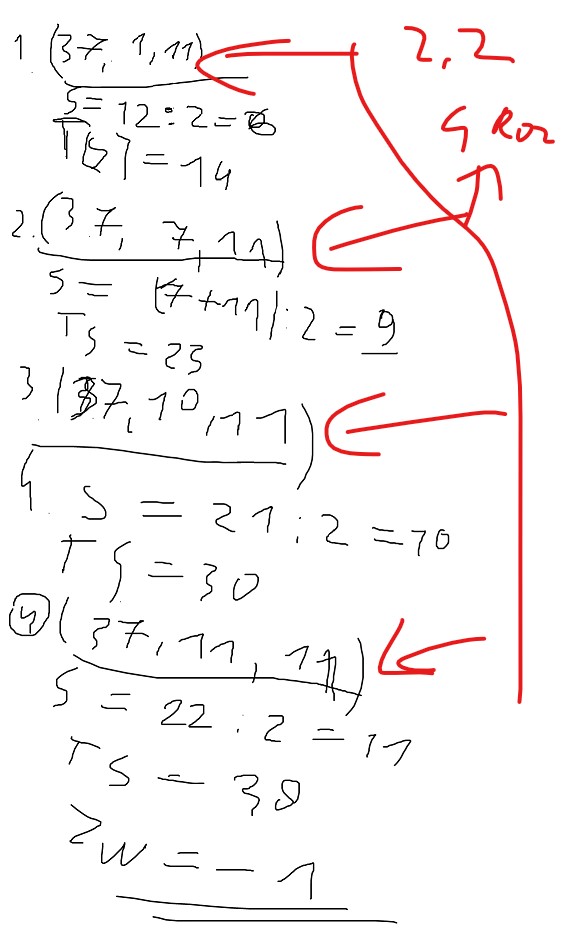 1. (37, 1, 11)
2,2
S = 12 : 2 = 6
4 Roz
T[S] = 14
2. (37, 7, 11)
S = (7+11) : 2 = 9
TS = 23
3 (37, 10, 11)
4. S = 21 : 2 = 10
TS = 30
4 (37, 11, 11)
S = 22 : 2 = 11
TS = 38
ZW = - 1